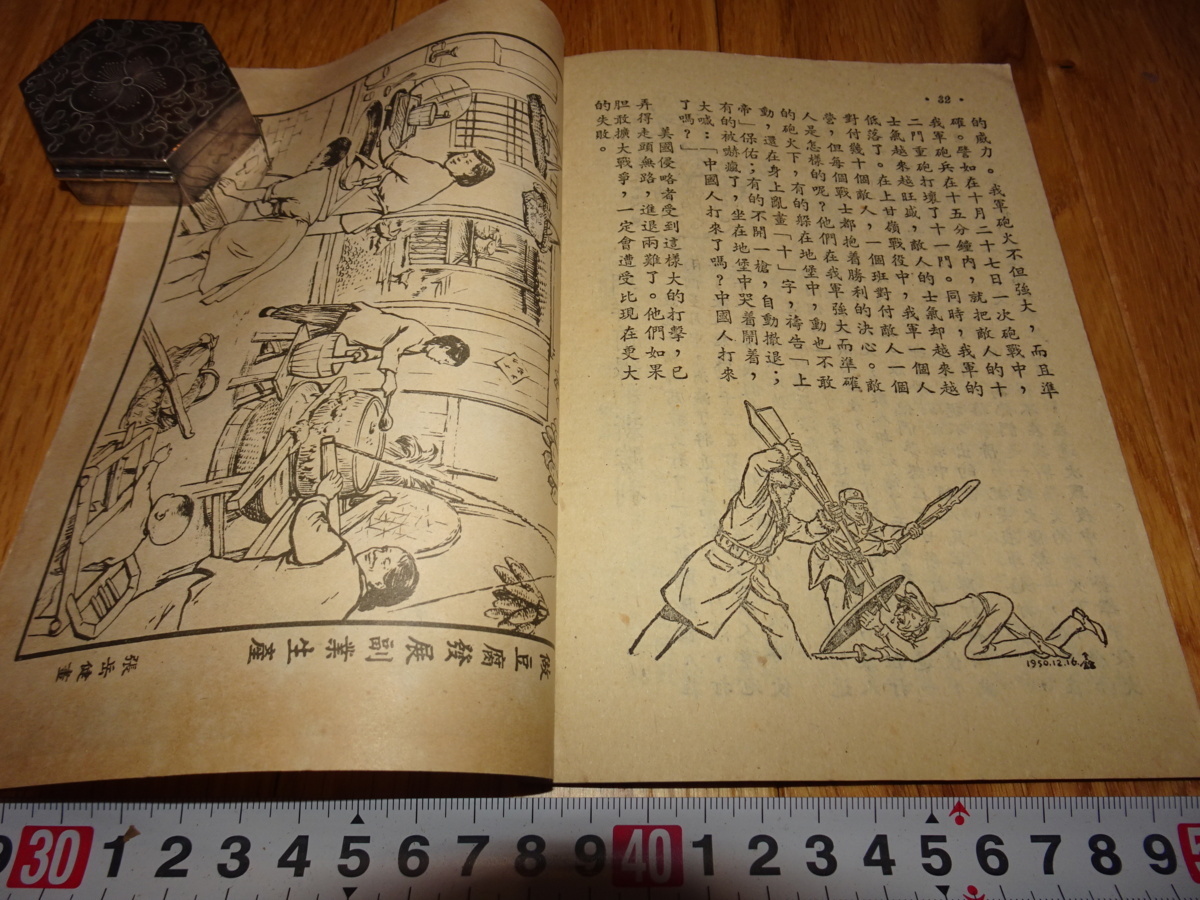 ·32·
的威力。我軍砲火不但强大，而且準
確。譬如在十月二十七日一次砲戰中，
我軍砲兵在十五分鐘内，就把敵人的十
二門重砲打壞了十一門。同時，我軍的
士氣越來越旺盛，敵人的士氣却越來越
低落了。在上甘嶺戰役中，我軍一個人
對付幾十個敵人，一個班對付敵人一個
營，但每個戰士都抱着勝利的决心。敵
人是怎樣的呢？他們在我軍强大而準確
的砲火下，有的躲在地堡中，動也不敢
動，還在身上亂畫「十」字，禱告「上
帝」保佑；有的不開一槍，自動撤退；
有的被嚇瘋了，坐在地堡中哭着鬧着，
大喊：「中國人打來了嗎？中國人打來
了嗎？」
美國侵略者受到這樣大的打擊，已
弄得走頭無路，進退兩難了。他們如果
胆敢擴大戰爭，一定會遭受比現在更大
的失敗。
1950.12.16.
做豆腐發展副業生產
張岳健畫
30 1 2 3 4 5 6 7 8 9 40 1 2 3 4 5 6 7 8 9